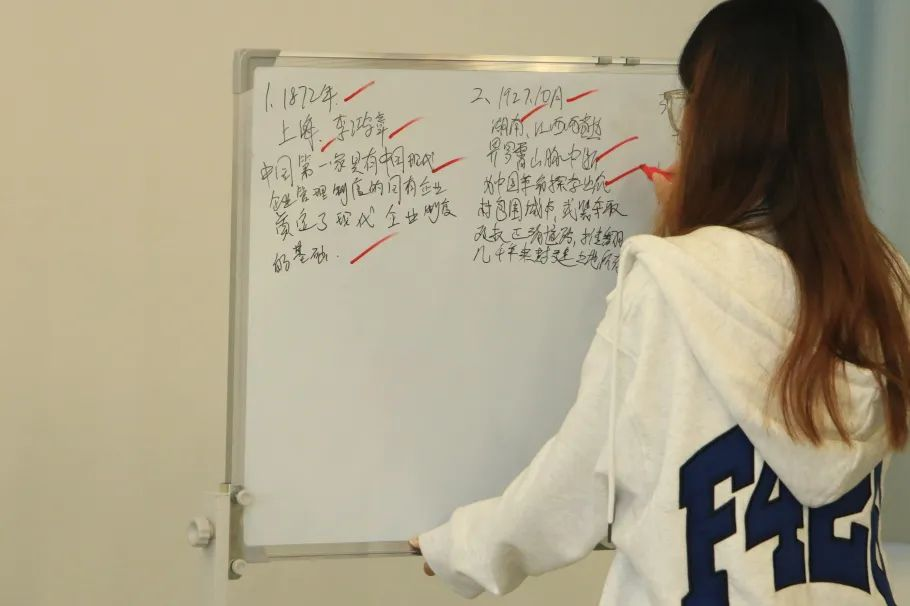 1. 1872年.
上海. 李鸿章
中国第一家具有中国现代
企业管理制度的国有企业
奠定了现代企业制度
的基础.
2、1927.10月
湖南、江西两省边
界罗霄山脉中断
为中国革命探索出农
村包围城市，武装夺取
政权 正确道路，
几千年来封建土地所有
F42